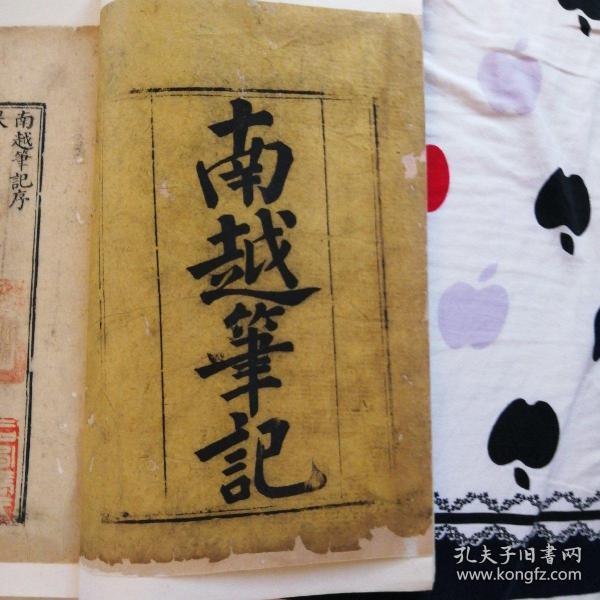 南越筆記
南越筆記序
孔夫子旧书网
www.kongfz.com